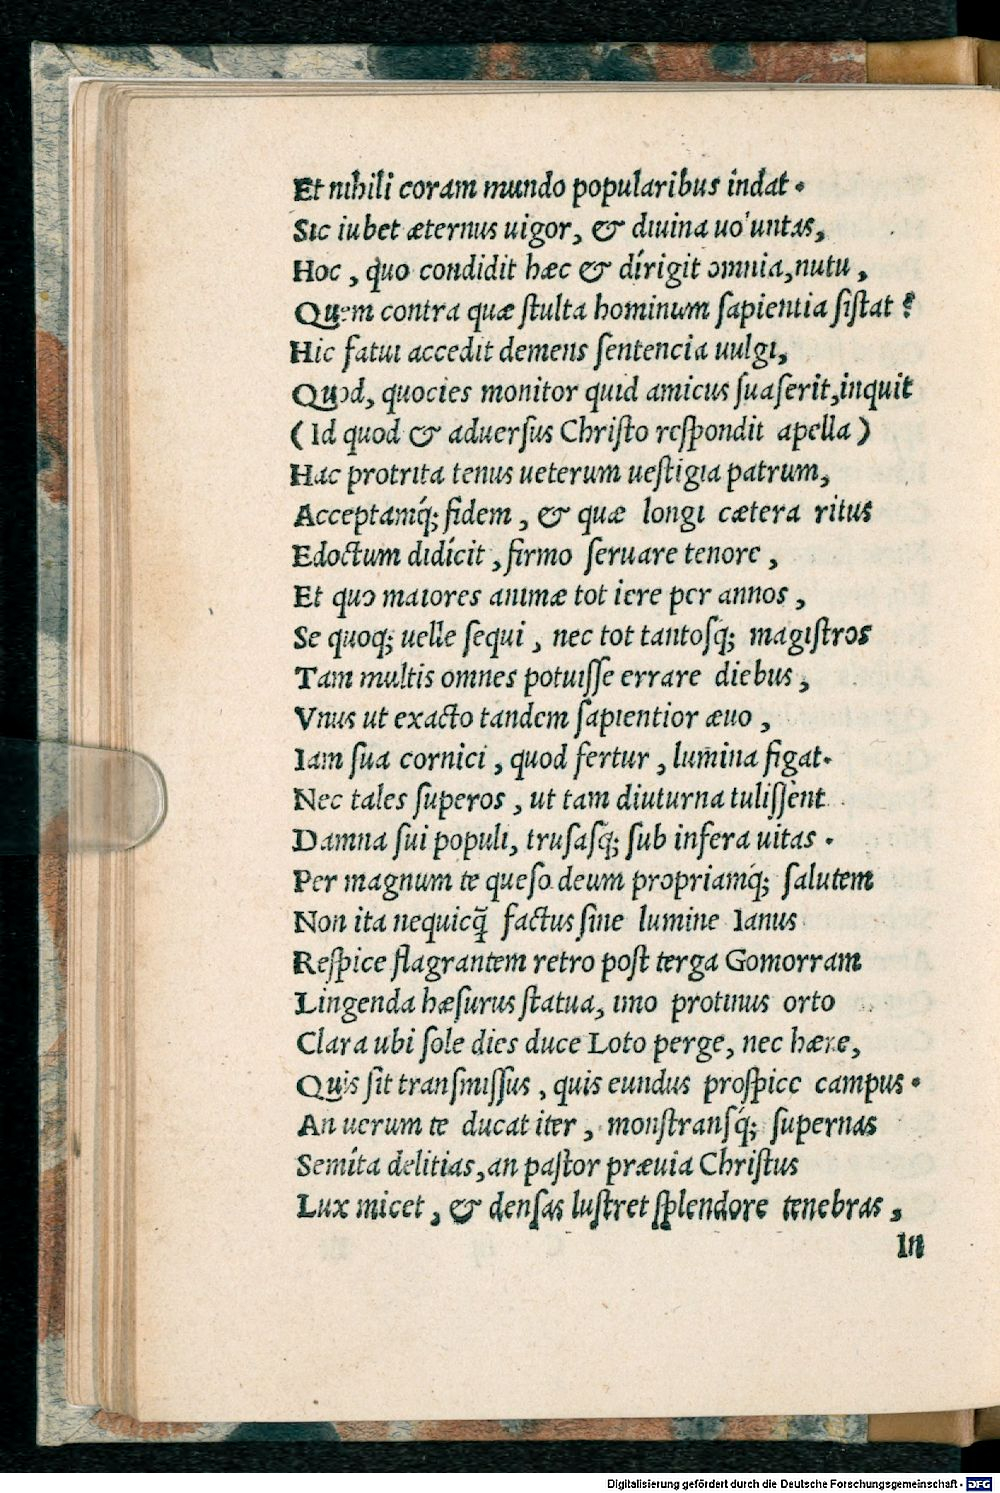 Et nihili coram mundo popularibus indat.
Sic iubet æternus uigor, & diuina uo'untas,
Hoc, quo condidit hæc & dírigit omnia, nutu,
Quem contra quæ ſtulta hominum ſapientia ſiſtat?
Hic fatui accedit demens ſentencia uulgi,
Quod, quocies monitor quid amicus ſuaſerit, inquit
(Id quod & aduerſus Chriſto reſpondit apella)
Hac protrita tenus ueterum ueſtigia patrum,
Acceptamq́; fidem, & quæ longi cætera ritus
Edoctum didícit, firmo ſeruare tenore,
Et quo maiores animæ tot iere per annos,
Se quoq; uelle ſequi, nec tot tantoſq́; magiſtros
Tam multis omnes potuiſſe errare diebus,
Vnus ut exacto tandem ſapientior æuo,
Iam ſua cornici, quod fertur, lumina figat.
Nec tales ſuperos, ut tam diuturna tuliſſent
Damna ſui populi, truſaſq́; ſub infera uitas.
Per magnum te queſo deum propriamq́; ſalutem
Non ita nequicq̃ factus ſine lumine Ianus
Reſpice flagrantem retro poſt terga Gomorram
Lingenda hæſurus ſtatua, imo protinus orto
Clara ubi ſole dies duce Loto perge, nec hære,
Quis ſit tranſmiſſus, quis eundus proſpice campus.
An uerum te ducat iter, monſtranſq́; ſupernas
Semíta delitias, an paſtor præuia Chriſtus
Lux micet, & denſas luſtret ſplendore tenebras,
In
Digitalisierung gefördert durch die Deutsche Forschungsgemeinschaft - DFG